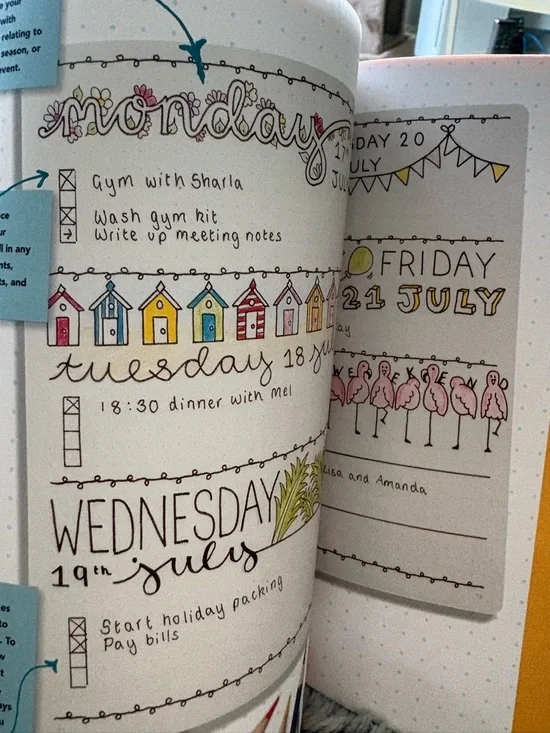 your
with
relating to
season, or
event.
monday
17th
JUL
Gym with Sharla
Wash gym kit
Write up meeting notes
ur
ll in any
nts,
ts, and
tuesday 18
18:30 dinner with Mel
WEDNESDAY
19th july
Start holiday packing
Pay bills
es
to
To
w
ays
u
DAY 20
ULY
FRIDAY
21 JULY
ay
WEEKEND
Lisa and Amanda